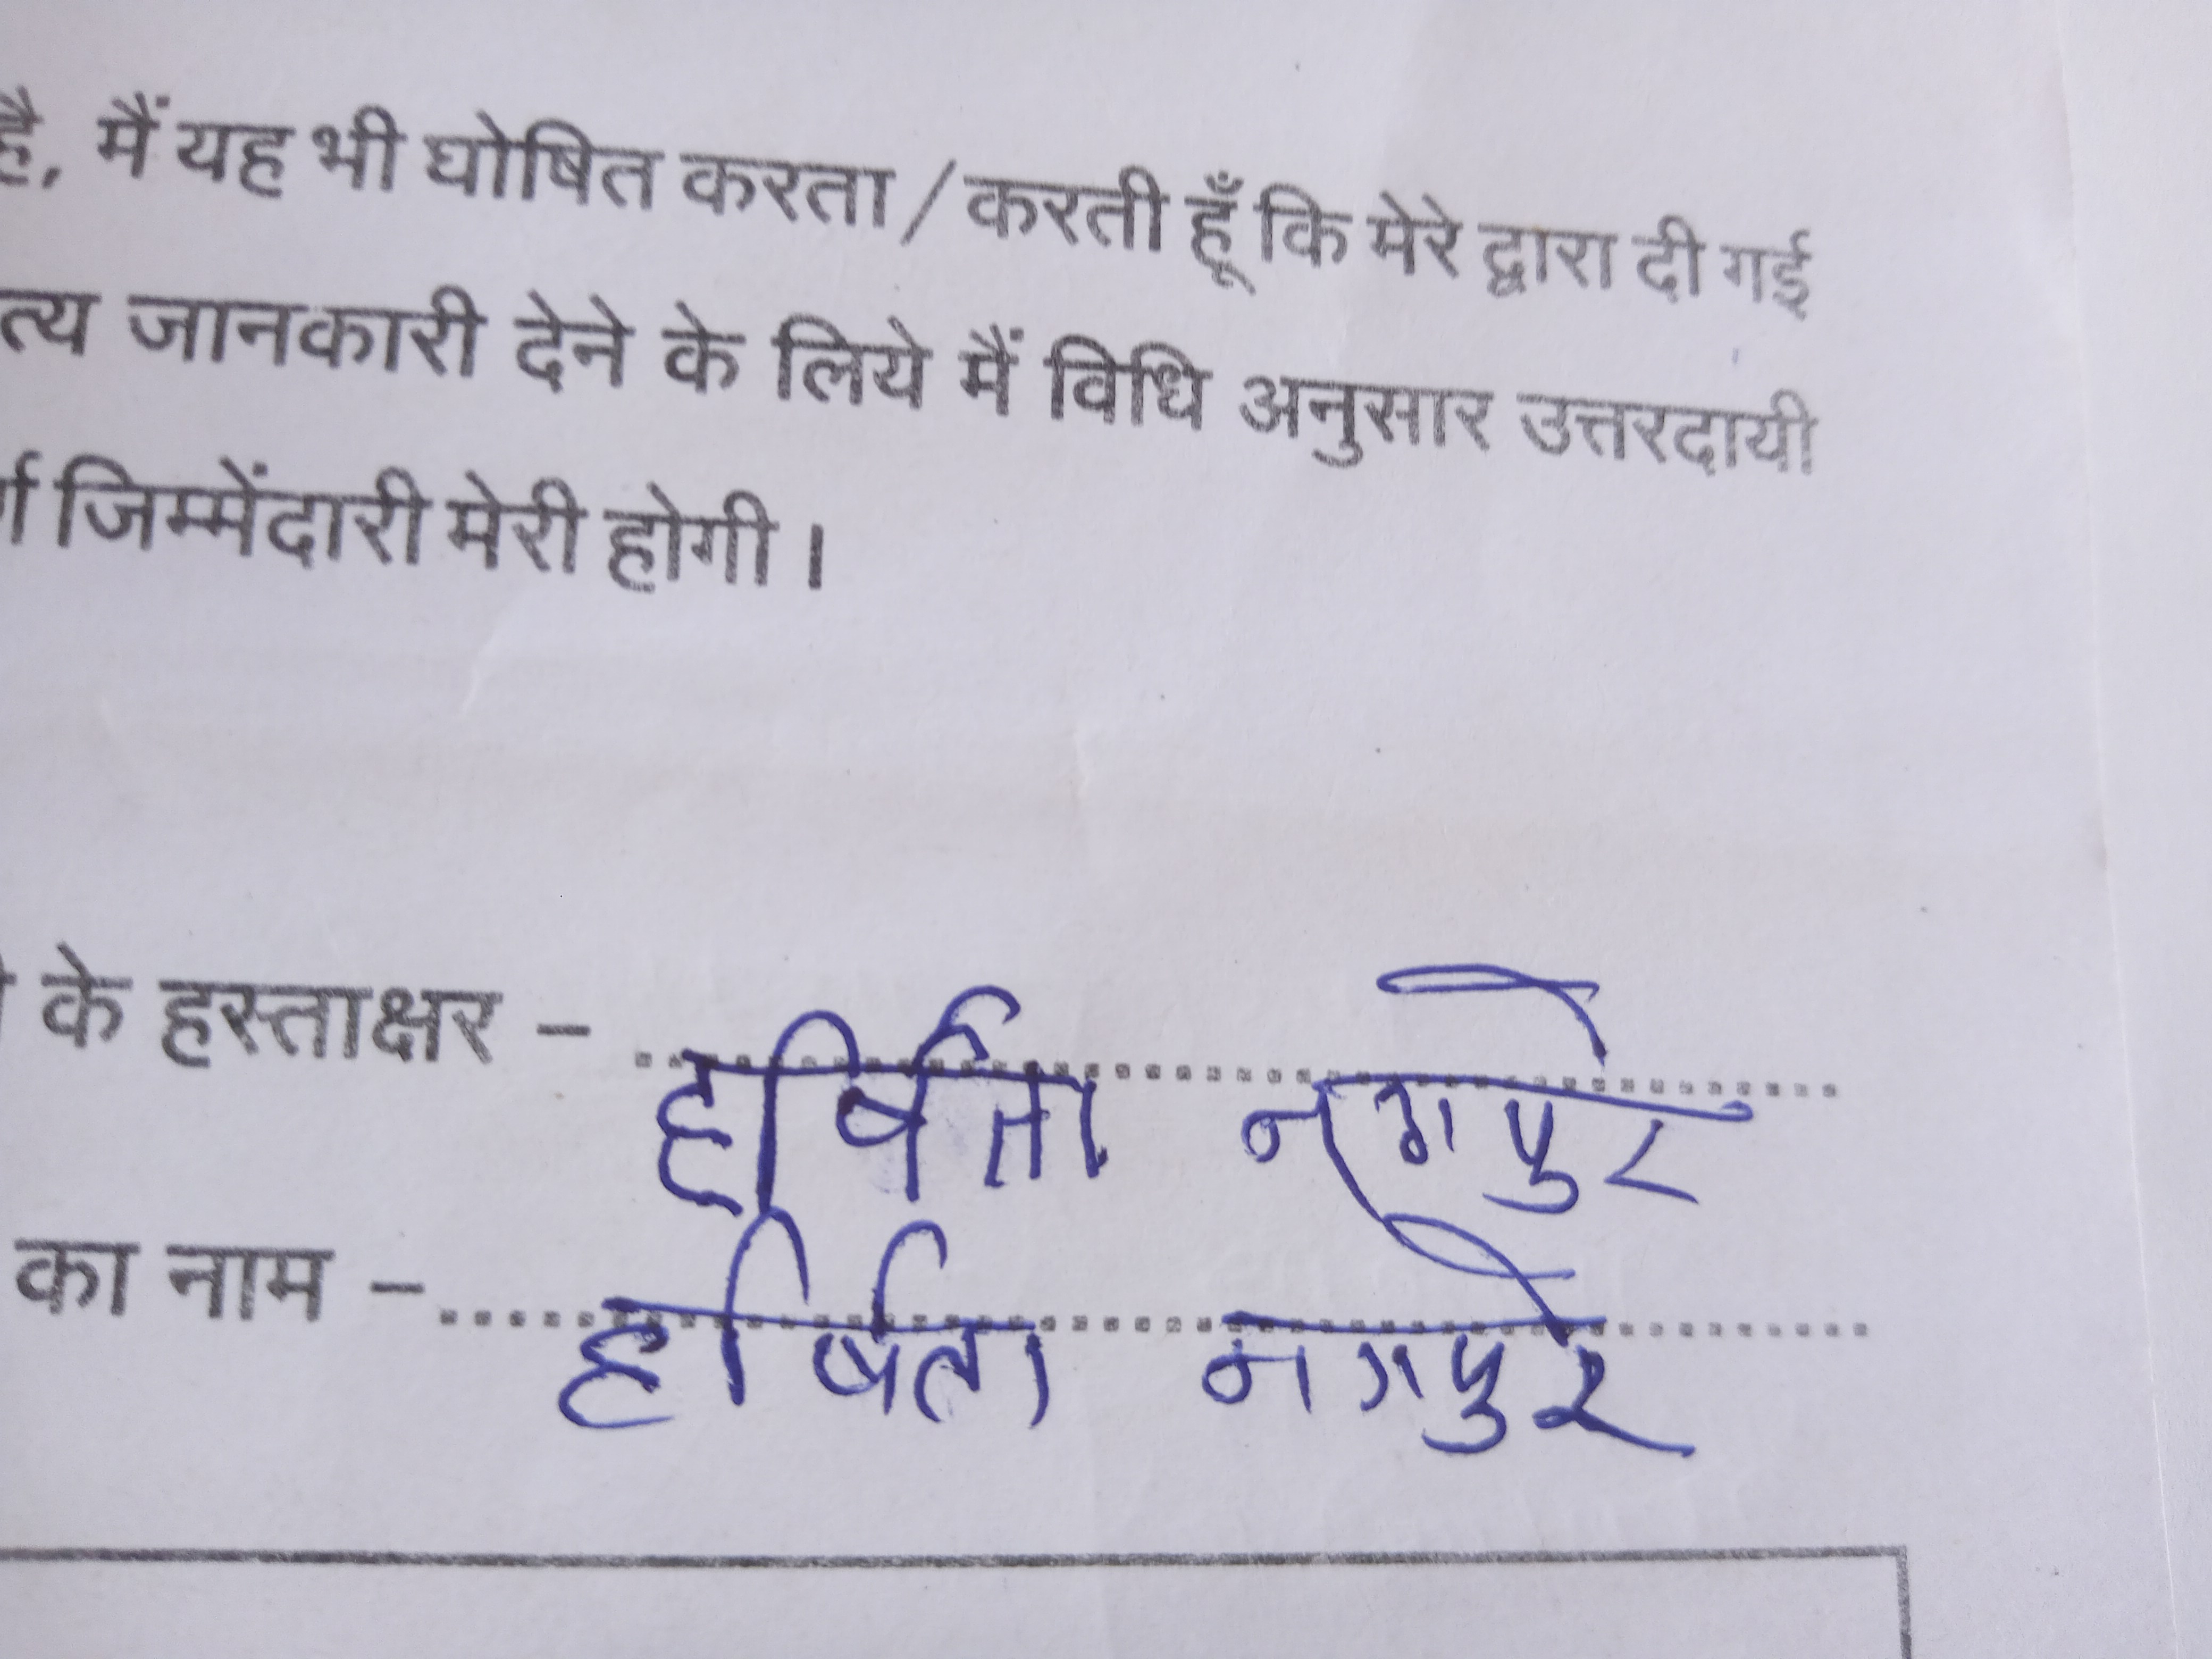 है, मैं यह भी घोषित करता/करती हूँ कि मेरे द्वारा दी गई
त्य जानकारी देने के लिये मैं विधि अनुसार उत्तरदायी
जिम्मेंदारी मेरी होगी।
के हस्ताक्षर – हर्षिता नगपुरे
का नाम – हर्षिता नगपुरे